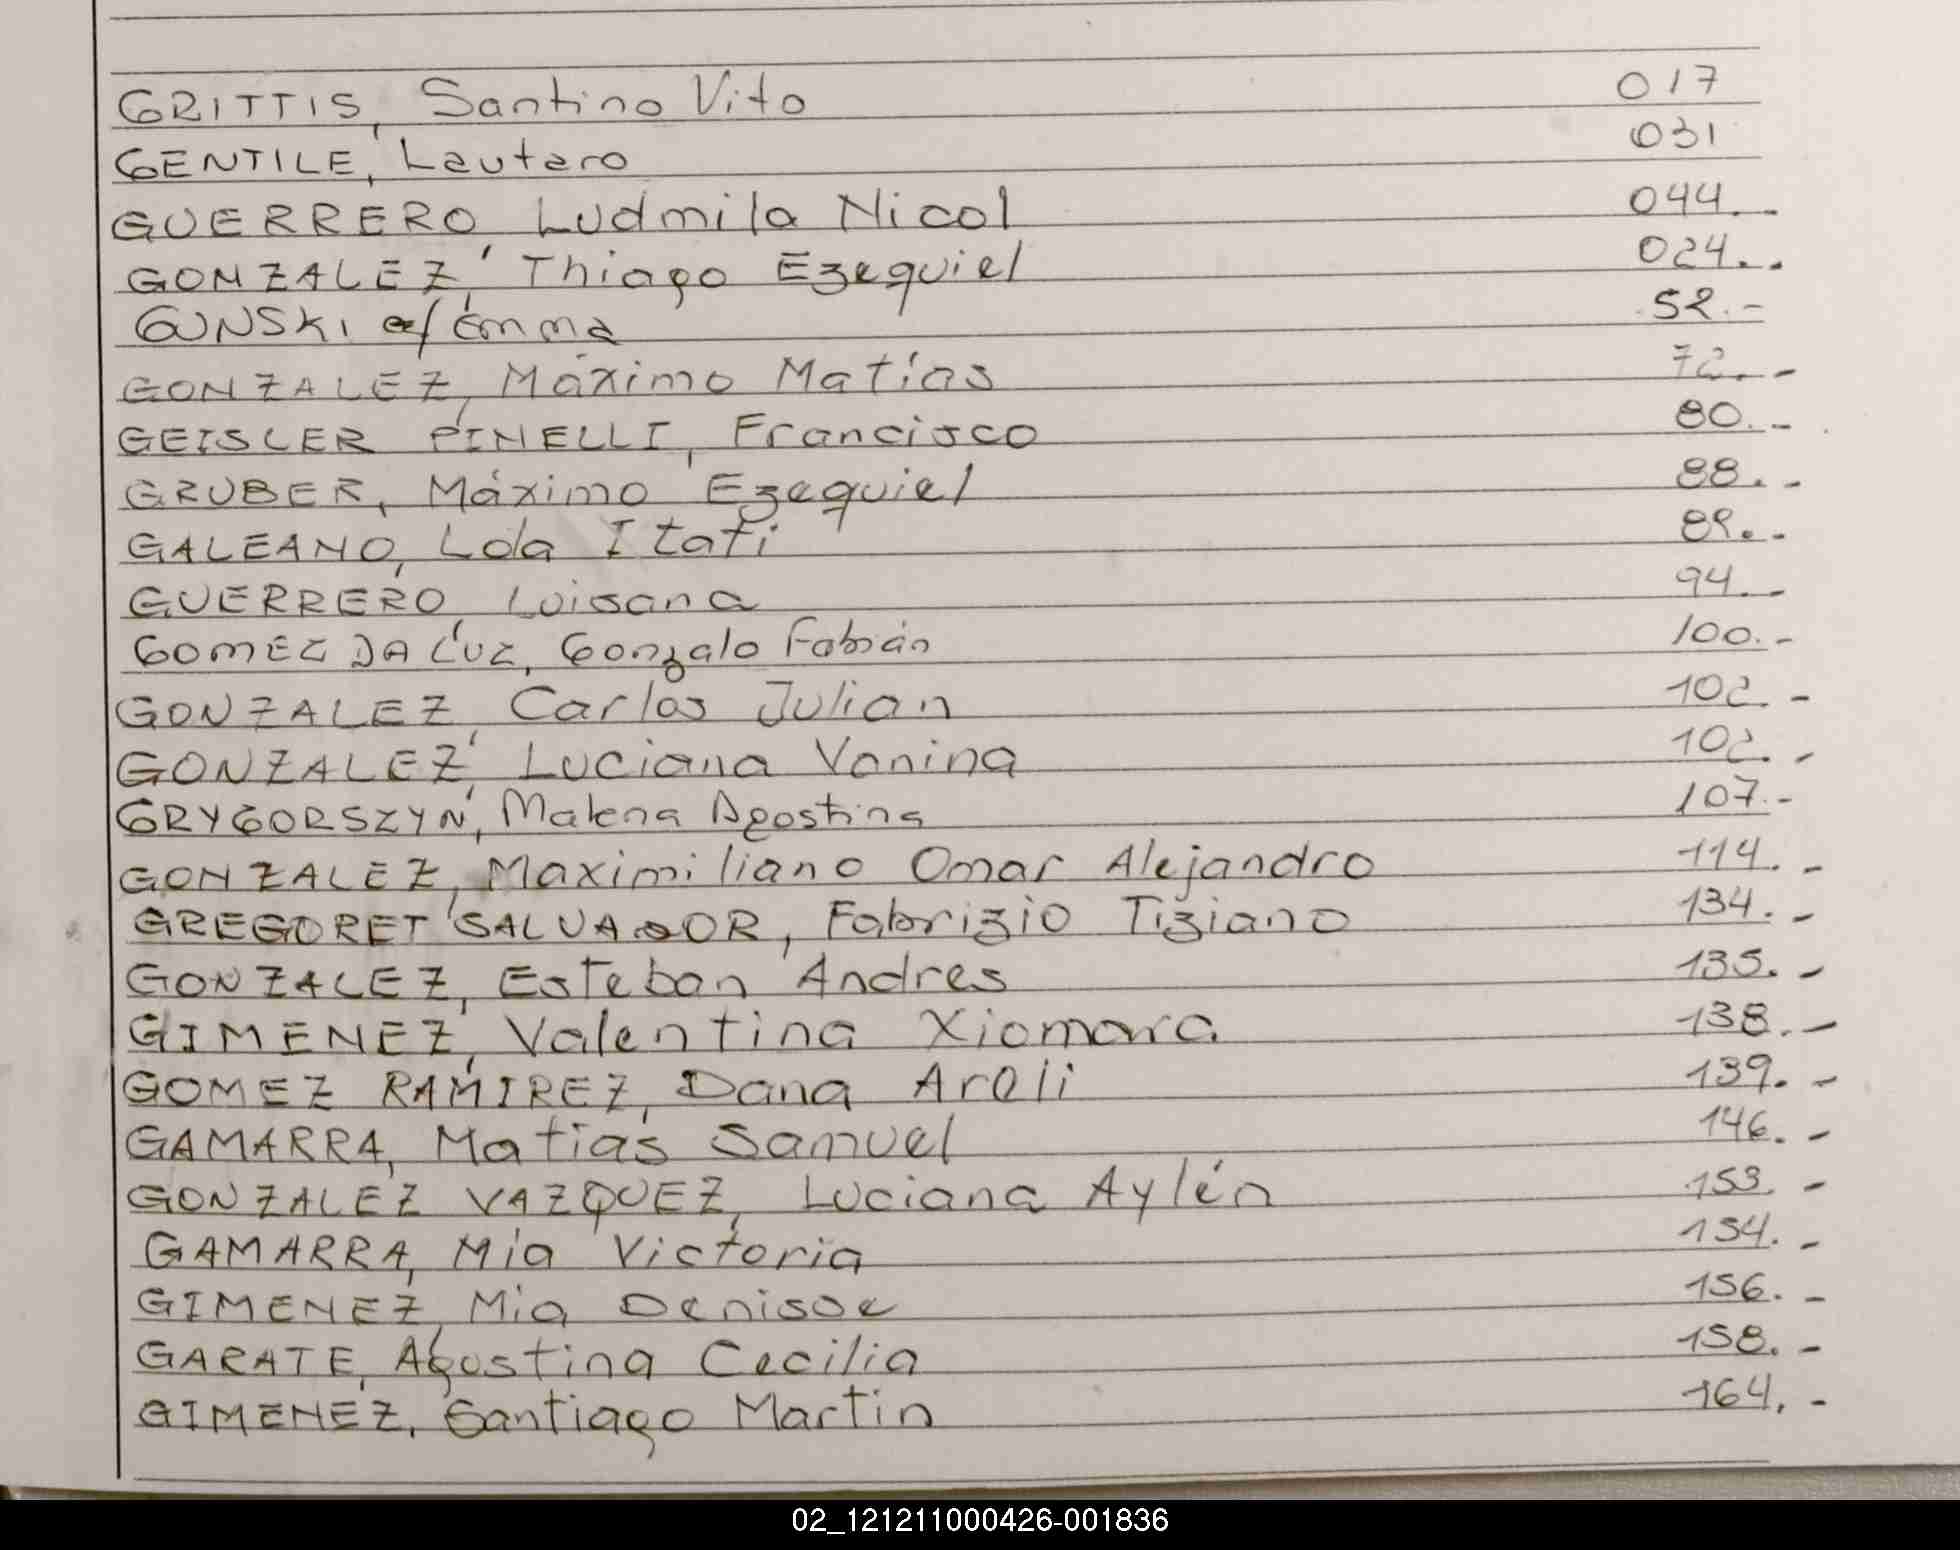 GRITTIS, Santino Vito 017
GENTILE, Lautaro 031
GUERRERO, Ludmila Nicol 044.-
GONZALEZ, Thiago Ezequiel 024.-
GUNSKI Emma 52.-
GONZALEZ, Máximo Matías 72.-
GEISLER PINELLI, Francisco 80.-
GRUBER, Máximo Ezequiel 88.-
GALEANO, Lola Itatí 89.-
GUERRERO, Luisana 94.-
GOMEZ DA LUZ, Gonzalo Fabián 100.-
GONZALEZ, Carlos Julian 102.-
GONZALEZ, Luciana Vanina 102.-
GRYGORSZYN, Malena Agostina 107.-
GONZALEZ, Maximiliano Omar Alejandro 114.-
GREGORET SALVADOR, Fabrizio Tiziano 134.-
GONZALEZ, Esteban Andres 135.-
GIMENEZ, Valentina Xiomara 138.-
GOMEZ RAMIREZ, Dana Areli 139.-
GAMARRA, Matias Samuel 146.-
GONZALEZ VAZQUEZ, Luciana Aylén 153.-
GAMARRA, Mía Victoria 154.-
GIMENEZ, Mia Denisse 156.-
GARATE, Agustina Cecilia 158.-
GIMENEZ, Santiago Martin 164.-
02_121211000426-001836